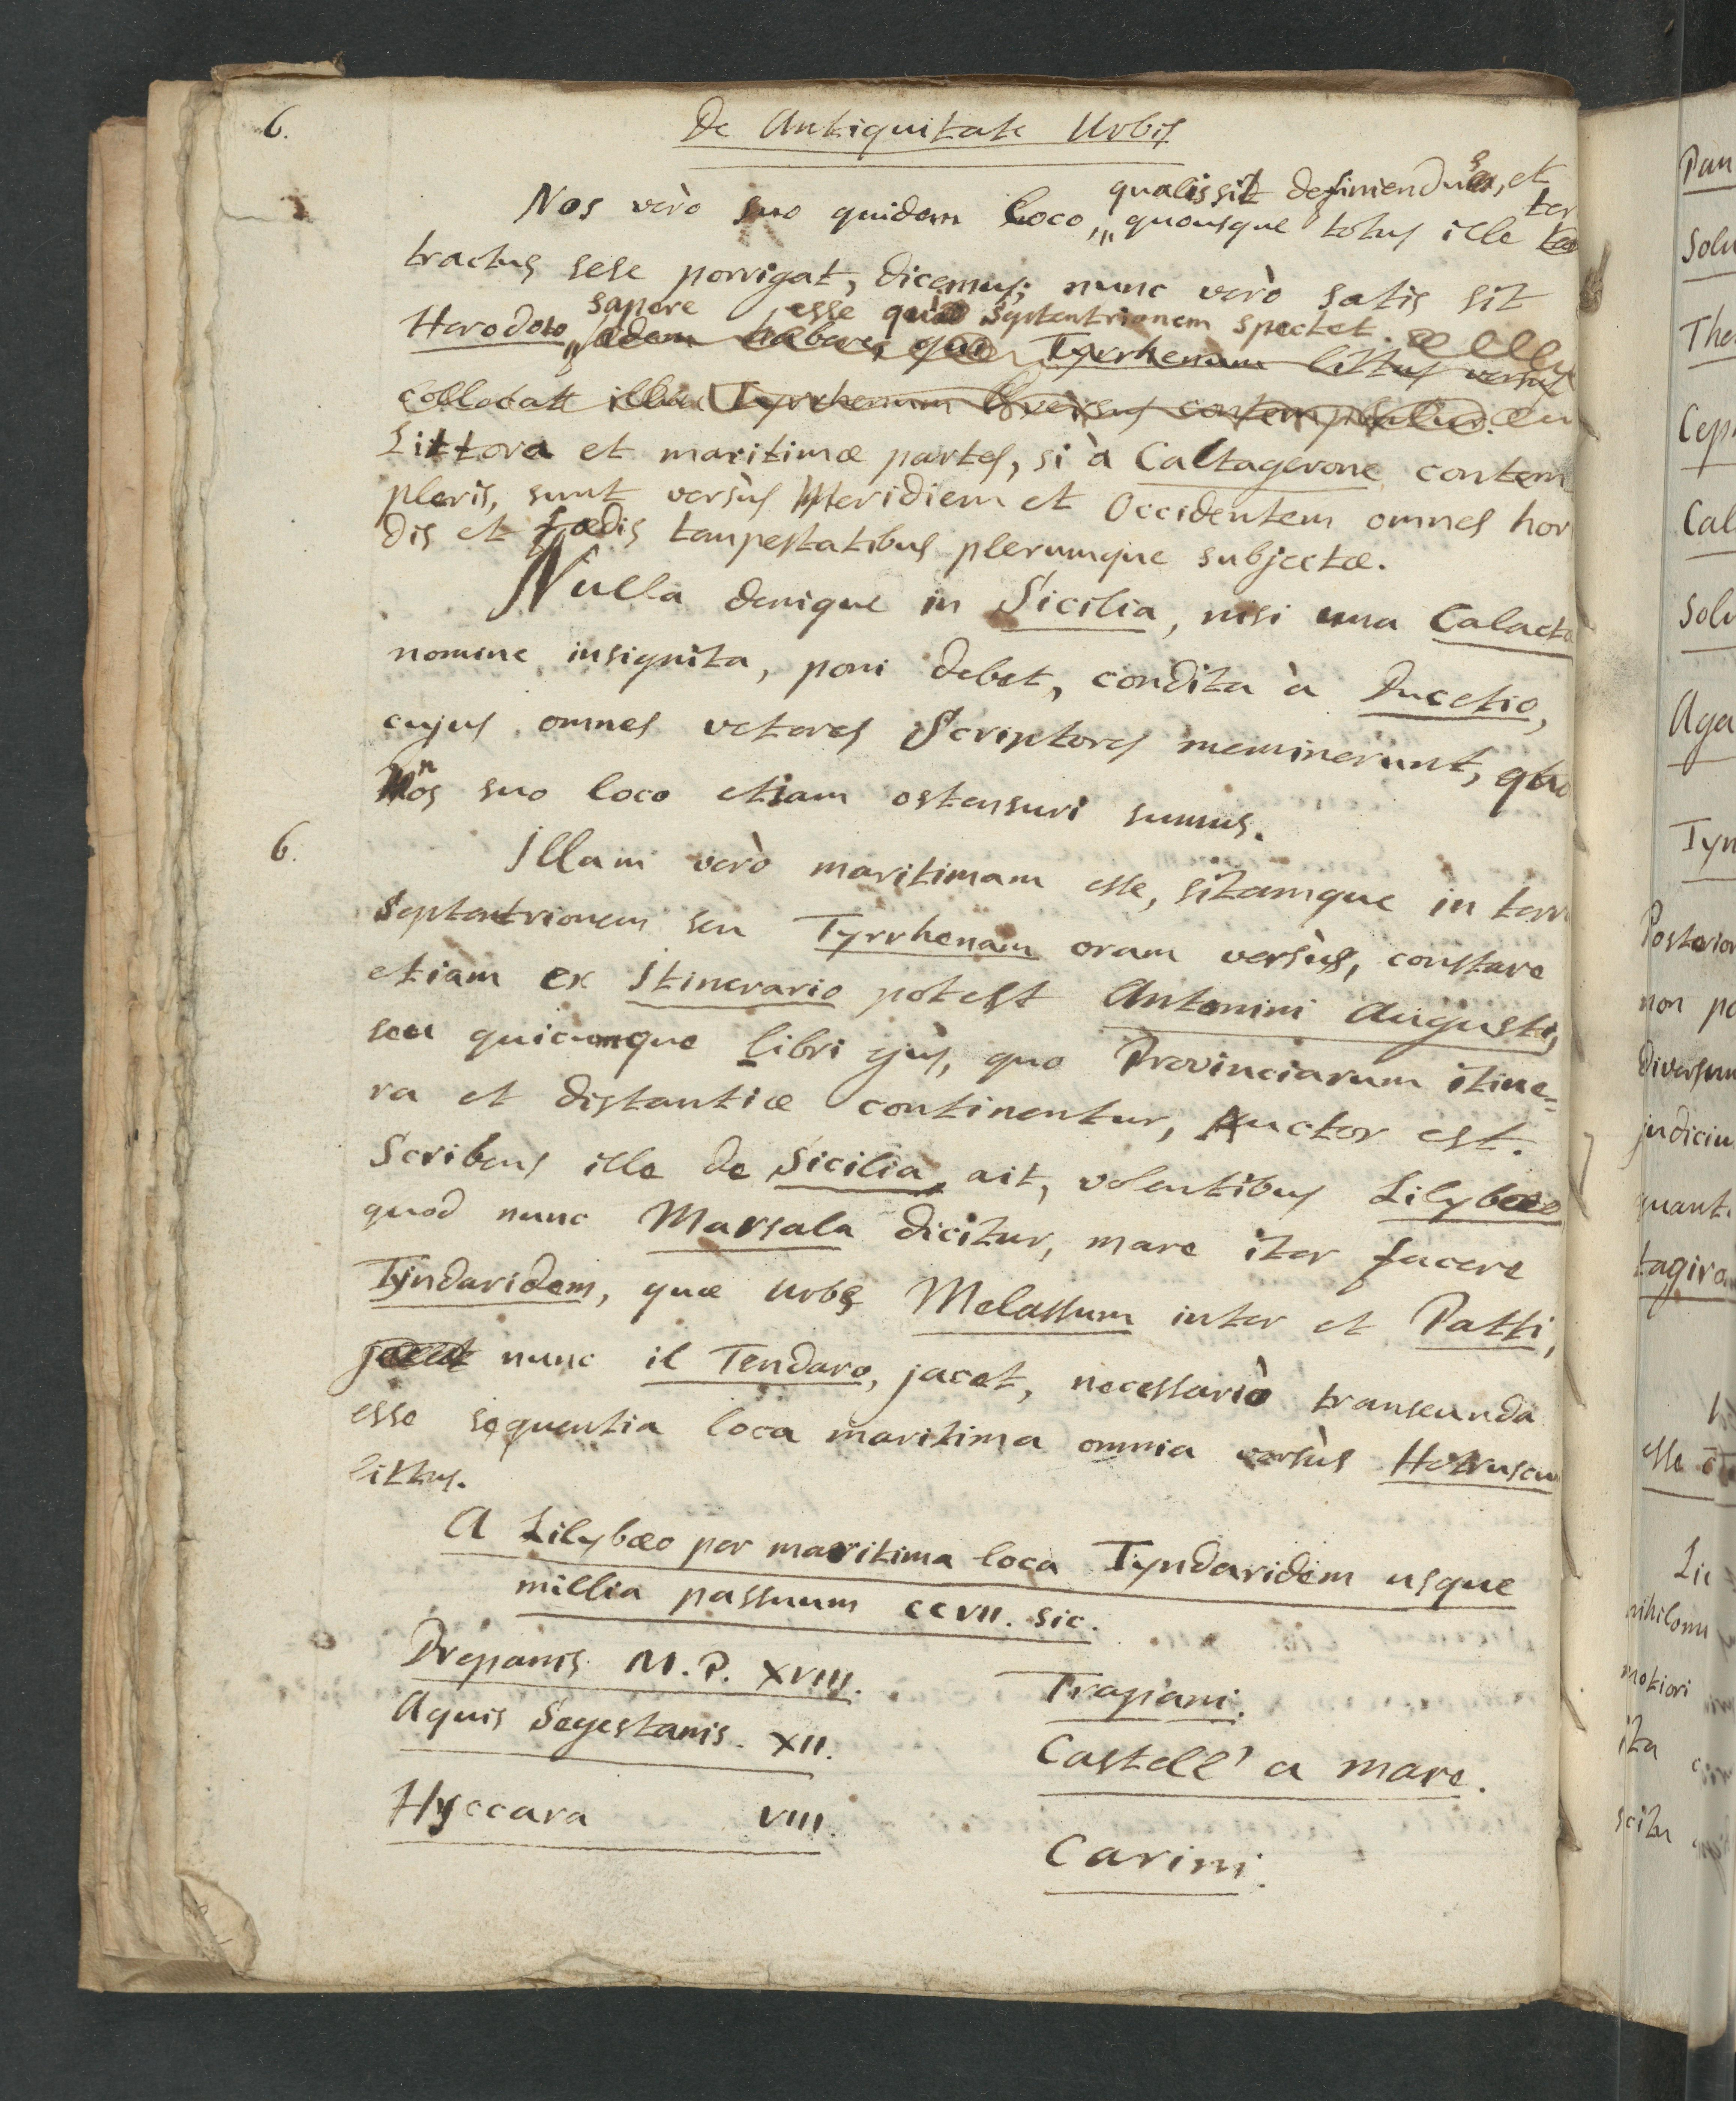 6.
De Antiquitate Urbis
qualis sit definiendus, et
Nos verò suo quidem loco, quousque totus ille ter
tractus sese porrigat, dicemus; nunc verò satis sit
sapere esse quòd Septentrionem spectet.
Herodoto eidem habere, qui Tyrrhenum littus versus
collocat illam Tyrrhenum versus contemplatur.
Littora et maritimæ partes, si à Caltagerone contem
pleris, sunt versùs Meridiem et Occidentem omnes hor
dis et fœdis tempestatibus plerumque subjectæ.
Nulla denique in Sicilia, nisi una Calacta
nomine insignita, poni debet, condita à Ducetio,
cujus omnes veteres Scriptores meminerunt, quo
nos suo loco etiam ostensuri sumus.
6.
Illam verò maritimam esse, sitamque in terr
Septentrionem seu Tyrrhenam oram versùs, constare
etiam ex Itinerario potest Antonini Augusti,
seu quicunque libri ejus, quo Provinciarum itine=
ra et distantiæ continentur, Auctor est.
Scribens ille de Sicilia, ait, volentibus Lilybæo
quod nunc Marsala dicitur, mare iter facere
Tyndaridem, quæ urbs Melassum inter et Patti,
jacet nunc il Tendaro, jacet, necessariò transeunda
esse sequentia loca maritima omnia versùs Hetruscum
littus.
A Lilybæo per maritima loca Tyndaridem usque
millia passuum CCVII. sic.
Drepanis M. P. XVIII. Trapani.
Aquis Segestanis. XII. Castell' a mare.
Hyccara VIII. Carini.
Pan
Solu
The
Cep
Cal
Solu
Aga
Tyn
Posterior
non po
diversum
judiciu
quant
tagiro
esse
Lic
nihilomi
motiori
ita
scitu